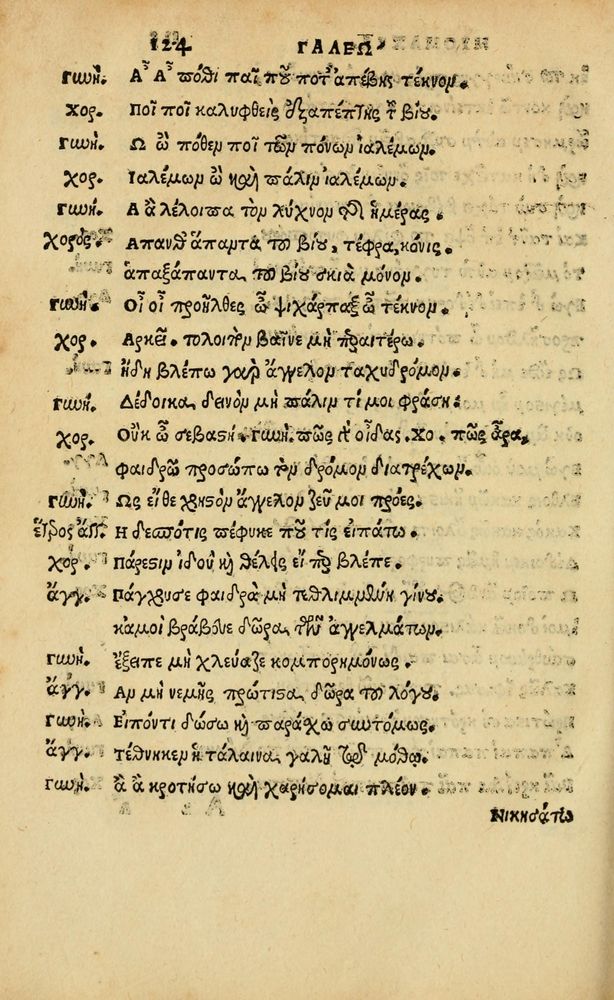 124 ΓΑΛΕΩ
γωὴ. Αἶ Αἶ πόθι παῖ ποῦ ποτ' ἀπέβης τέκνον.
χορ. Ποῖ ποῖ καλυφθεὶς ἐξαπέπτης τοῦ βίου.
γωὴ. Ω ὢ πόθεν ποῖ τῶν πόνων ἰαλέμων.
χορ. Ιαλέμων ὢ καὶ πάλιν ἰαλέμων.
γωὴ. Α ἂ λέλοιπα τὸν λύχνον τῆς ἡμέρας.
χορὸς. Απανθ' ἅπαντα τοῦ βίου, τέφρα, κόνις.
ἁπαξάπαντα, τοῦ βίου σκιὰ μόνον.
γωὴ. Οἶ οἶ προῆλθες ὦ ψιχάρπαξ ὦ τέκνον.
χορ. Αρκεῖ. τολοιπὸν βαῖνε μὴ περαιτέρω.
ἤδη βλέπω γὰρ ἄγγελον ταχυδρόμον.
γωὴ. Δέδοικα, δεινὸν μὴ πάλιν τί μοι φράσῃ.
χορ. Οὐκ ὦ σεβαστή. γωὴ. πῶς οἶδας. Χο. πῶς ἄρα,
φαιδρῷ προσώπῳ τὸν δρόμον διατρέχων.
γωὴ. Ως εἴθε χρηστὸν ἄγγελον ζεῦ μοι πρόες.
ἕτερος ἄγγ. Η δεσπότις πέφυκε ποῦ τίς εἰπάτω.
χορ. Πάρεστιν ἰδοὺ καὶ θέλεις εἴ που βλέπε.
ἄγγ. Πάγχυσε φαιδρὰ μὴ τεθλιμμένη γίνου.
κἀμοὶ βράβευε δῶρα, τῶν ἀγγελμάτων.
γωὴ. Εξειπε μὴ χλεύαζε κομπορρημόνως.
ἄγγ. Αν μὴ νεμῇς πρώτιστα, δῶρα τοῦ λόγου.
γωὴ. Εἰπόντι δώσω καὶ παράσχω συντόμως.
ἄγγ. τέθνηκεν ἡ τάλαινα, γαλῆ
γωὴ. ἂ ἂ κροτήσω καὶ χαρήσομαι πλέον.
Νικησάτω